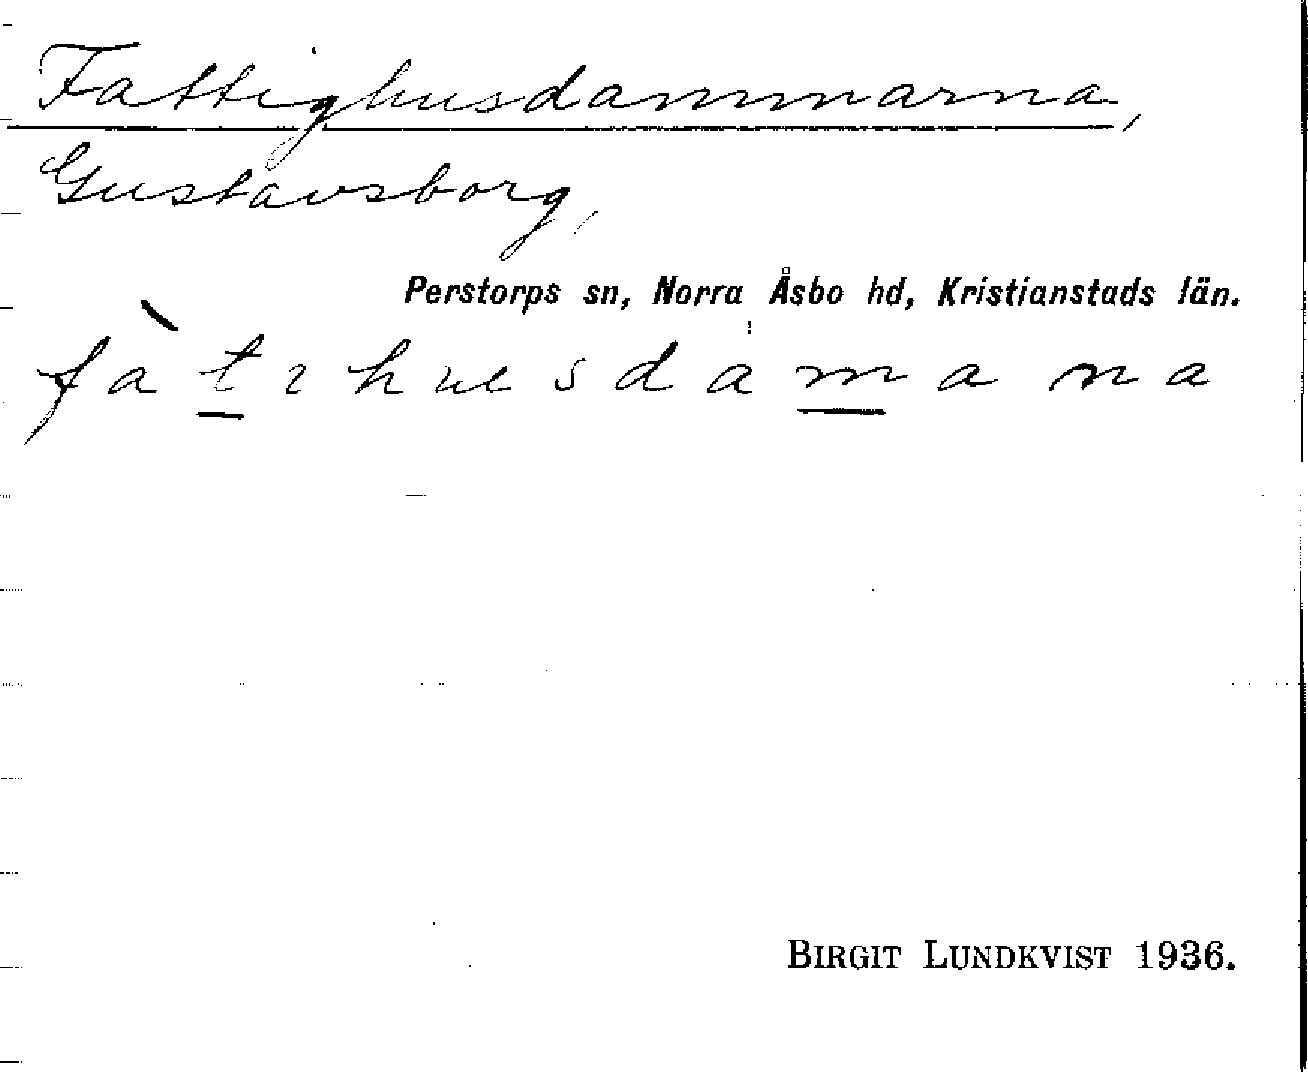 Fattighusdammarna,
Gustavsborg,
Perstorps sn, Norra Åsbo hd, Kristianstads län.
fàtıhusdamana
BIRGIT LUNDKVIST 1936.